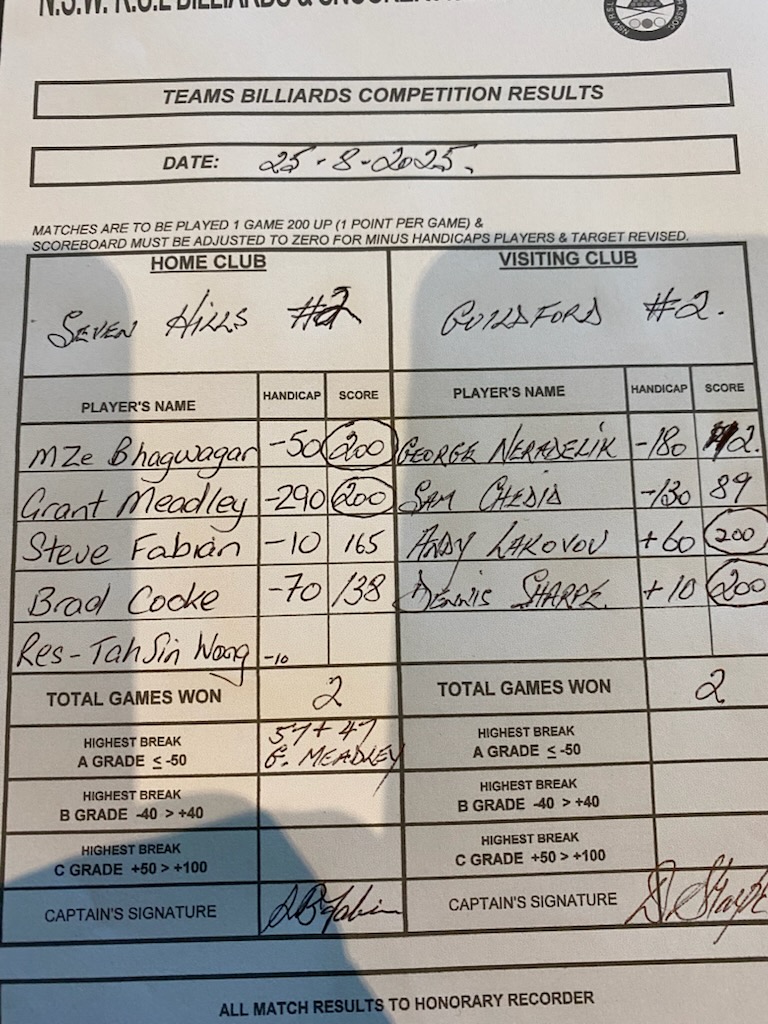 TEAMS BILLIARDS COMPETITION RESULTS
DATE: 25-8-2025.
MATCHES ARE TO BE PLAYED 1 GAME 200 UP (1 POINT PER GAME) &
SCOREBOARD MUST BE ADJUSTED TO ZERO FOR MINUS HANDICAPS PLAYERS & TARGET REVISED.
HOME CLUB VISITING CLUB
SEVEN HILLS #2 GUILDFORD #2.
PLAYER'S NAME HANDICAP SCORE PLAYER'S NAME HANDICAP SCORE
Mze Bhagwagar -50 200 GEORGE NERADELIK -180
Grant Meadley -290 200 SAM CHEDID -130 89
Steve Fabian -10 165 ANDY LAKOVOU +60 200
Brad Cocke -70 138 DENNIS SHARPE. +10 200
Res-Tah Sin Wong -10
TOTAL GAMES WON 2 TOTAL GAMES WON 2
HIGHEST BREAK
A GRADE ≤ -50 57+47 G. MEADLEY HIGHEST BREAK
A GRADE ≤ -50
HIGHEST BREAK
B GRADE -40 > +40 HIGHEST BREAK
B GRADE -40 > +40
HIGHEST BREAK
C GRADE +50 > +100 HIGHEST BREAK
C GRADE +50 > +100
CAPTAIN'S SIGNATURE CAPTAIN'S SIGNATURE D. Sharpe
ALL MATCH RESULTS TO HONORARY RECORDER